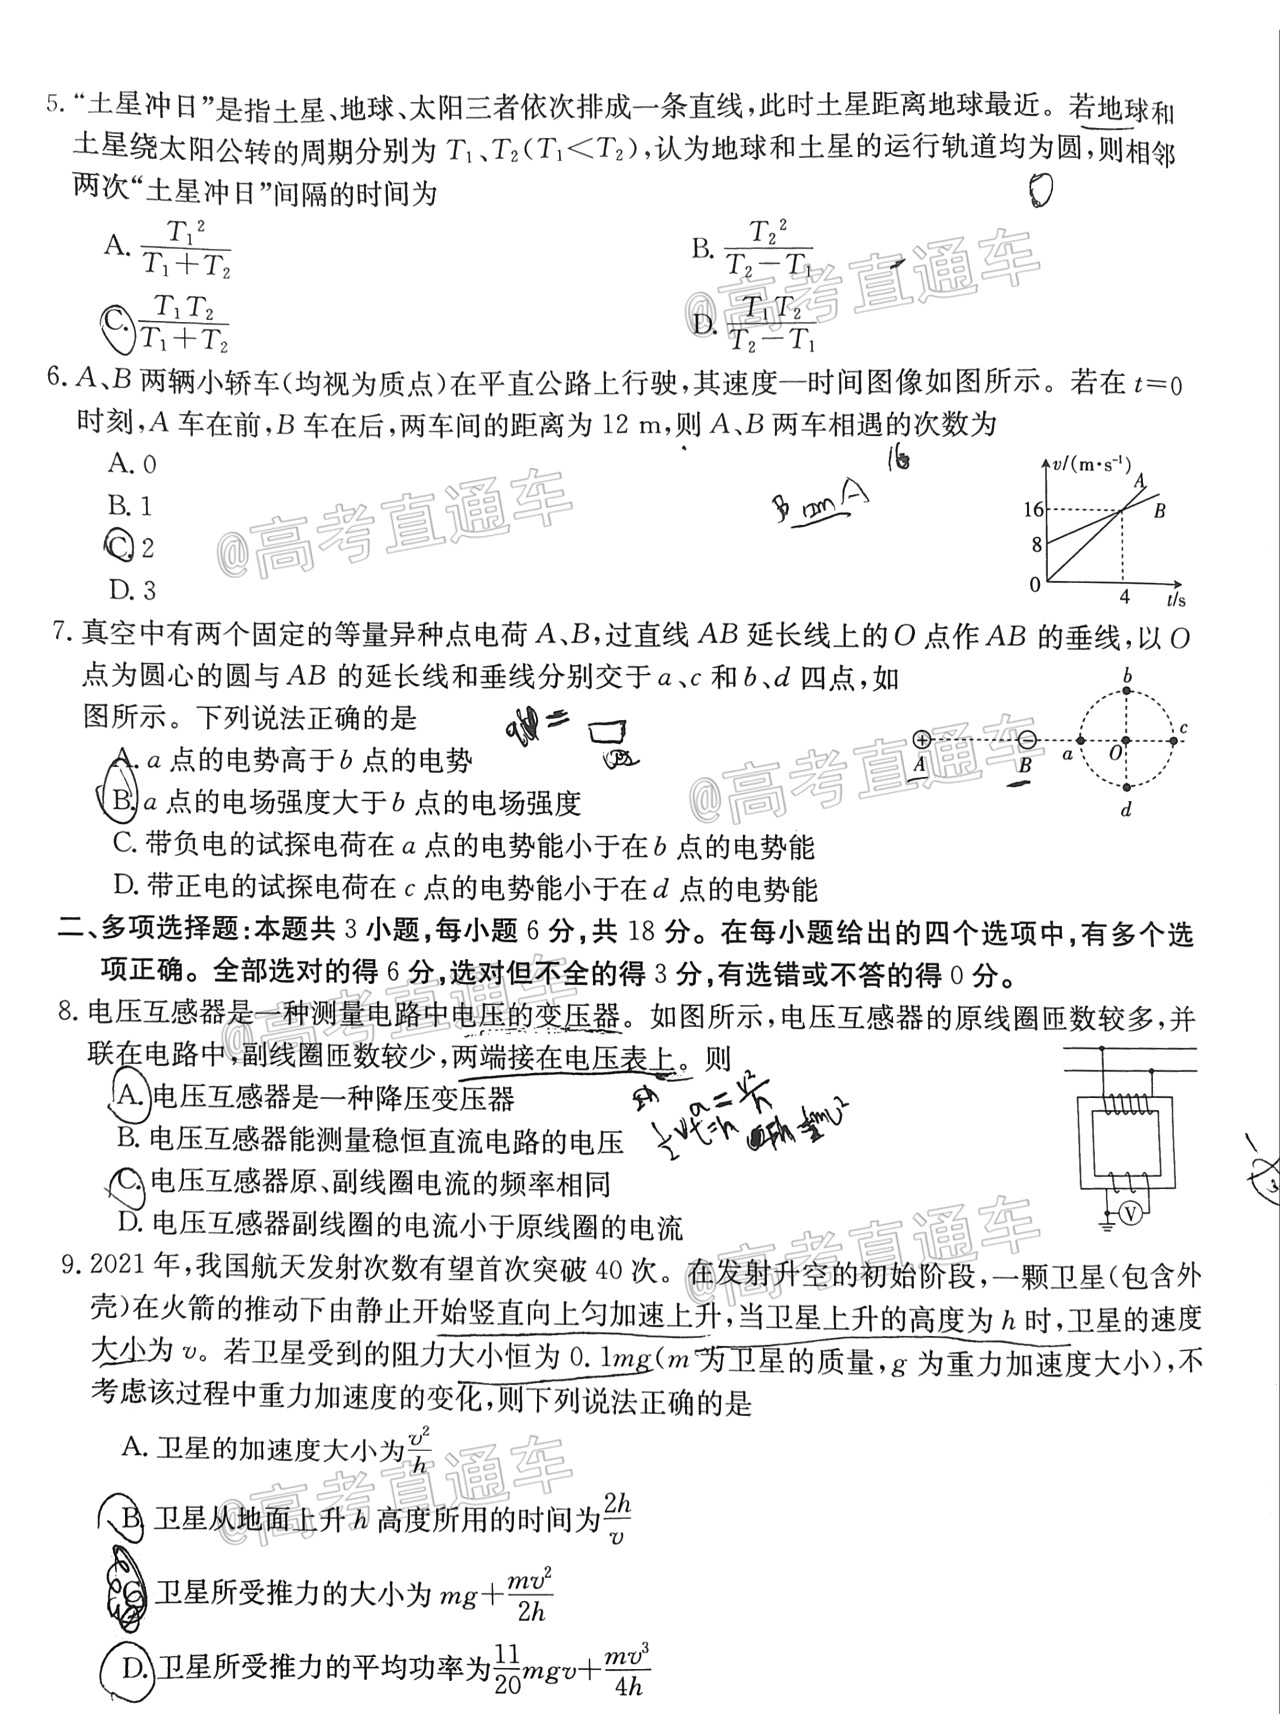 5. “土星冲日”是指土星、地球、太阳三者依次排成一条直线,此时土星距离地球最近。若地球和
土星绕太阳公转的周期分别为 T₁、T₂(T₁<T₂),认为地球和土星的运行轨道均为圆,则相邻
两次“土星冲日”间隔的时间为
A. T₁²/(T₁+T₂) B. T₂²/(T₂−T₁)
C. T₁T₂/(T₁+T₂) D. T₁T₂/(T₂−T₁)
@高考直通车
6. A、B 两辆小轿车(均视为质点)在平直公路上行驶,其速度—时间图像如图所示。若在 t=0
时刻,A 车在前,B 车在后,两车间的距离为 12 m,则 A、B 两车相遇的次数为
A. 0
B. 1
C. 2
D. 3
16
B 12m A
v/(m·s⁻¹)
A
B
16
8
0
4
t/s
@高考直通车
7. 真空中有两个固定的等量异种点电荷 A、B,过直线 AB 延长线上的 O 点作 AB 的垂线,以 O
点为圆心的圆与 AB 的延长线和垂线分别交于 a、c 和 b、d 四点,如
图所示。下列说法正确的是
A. a 点的电势高于 b 点的电势
B. a 点的电场强度大于 b 点的电场强度
C. 带负电的试探电荷在 a 点的电势能小于在 b 点的电势能
D. 带正电的试探电荷在 c 点的电势能小于在 d 点的电势能
+ −
A B a O c
b
d
@高考直通车
二、多项选择题:本题共 3 小题,每小题 6 分,共 18 分。在每小题给出的四个选项中,有多个选
项正确。全部选对的得 6 分,选对但不全的得 3 分,有选错或不答的得 0 分。
@高考直通车
8. 电压互感器是一种测量电路中电压的变压器。如图所示,电压互感器的原线圈匝数较多,并
联在电路中,副线圈匝数较少,两端接在电压表上。则
A. 电压互感器是一种降压变压器
B. 电压互感器能测量稳恒直流电路的电压
C. 电压互感器原、副线圈电流的频率相同
D. 电压互感器副线圈的电流小于原线圈的电流
a = v²/h
½vt=h
Fh=½mv²
V
@高考直通车
9. 2021 年,我国航天发射次数有望首次突破 40 次。在发射升空的初始阶段,一颗卫星(包含外
壳)在火箭的推动下由静止开始竖直向上匀加速上升,当卫星上升的高度为 h 时,卫星的速度
大小为 v。若卫星受到的阻力大小恒为 0.1mg(m 为卫星的质量,g 为重力加速度大小),不
考虑该过程中重力加速度的变化,则下列说法正确的是
A. 卫星的加速度大小为 v²/h
@高考直通车
B. 卫星从地面上升 h 高度所用的时间为 2h/v
卫星所受推力的大小为 mg+mv²/2h
D. 卫星所受推力的平均功率为 11/20 mgv+mv³/4h